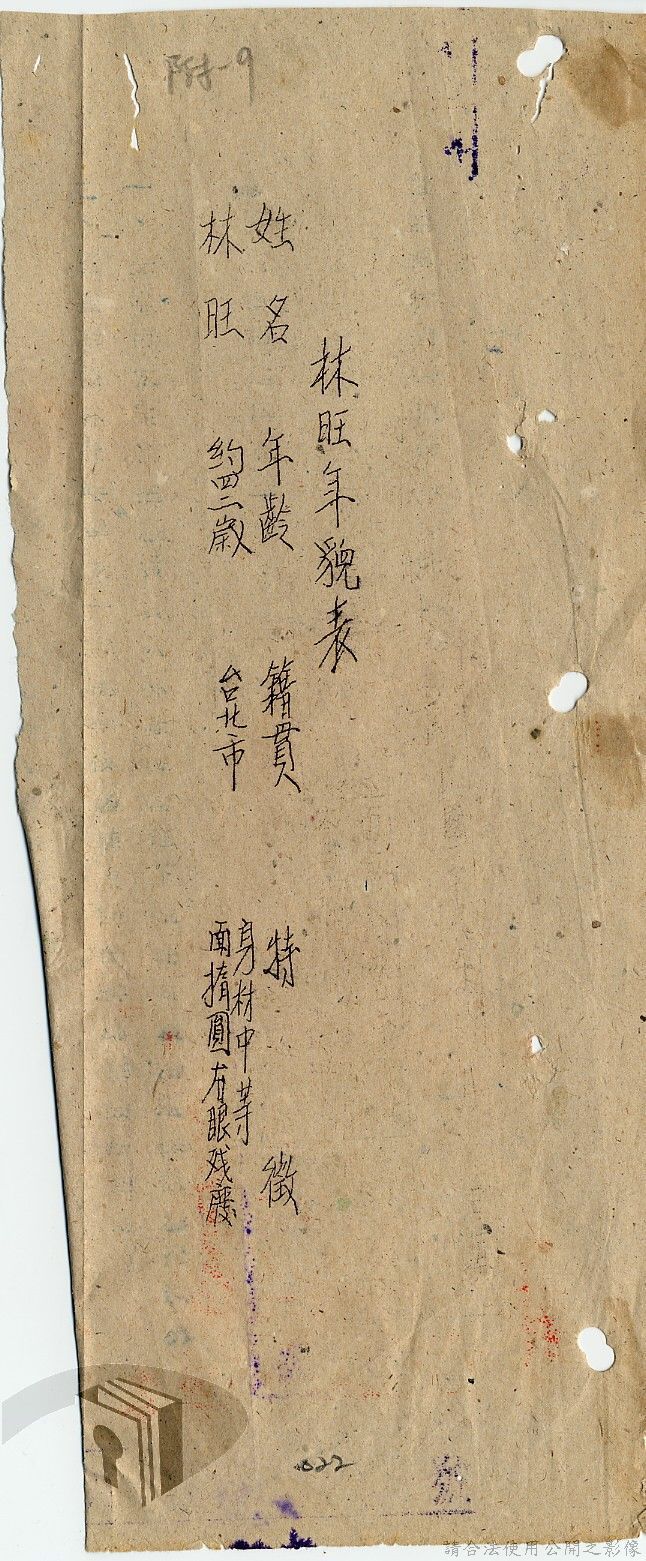 附-9
林旺年貌表
姓名 年齡 籍貫 特徵
林旺 約四二歲 台北市 身材中等
面橢圓右眼残廢
022
號
請合法使用公開之影像